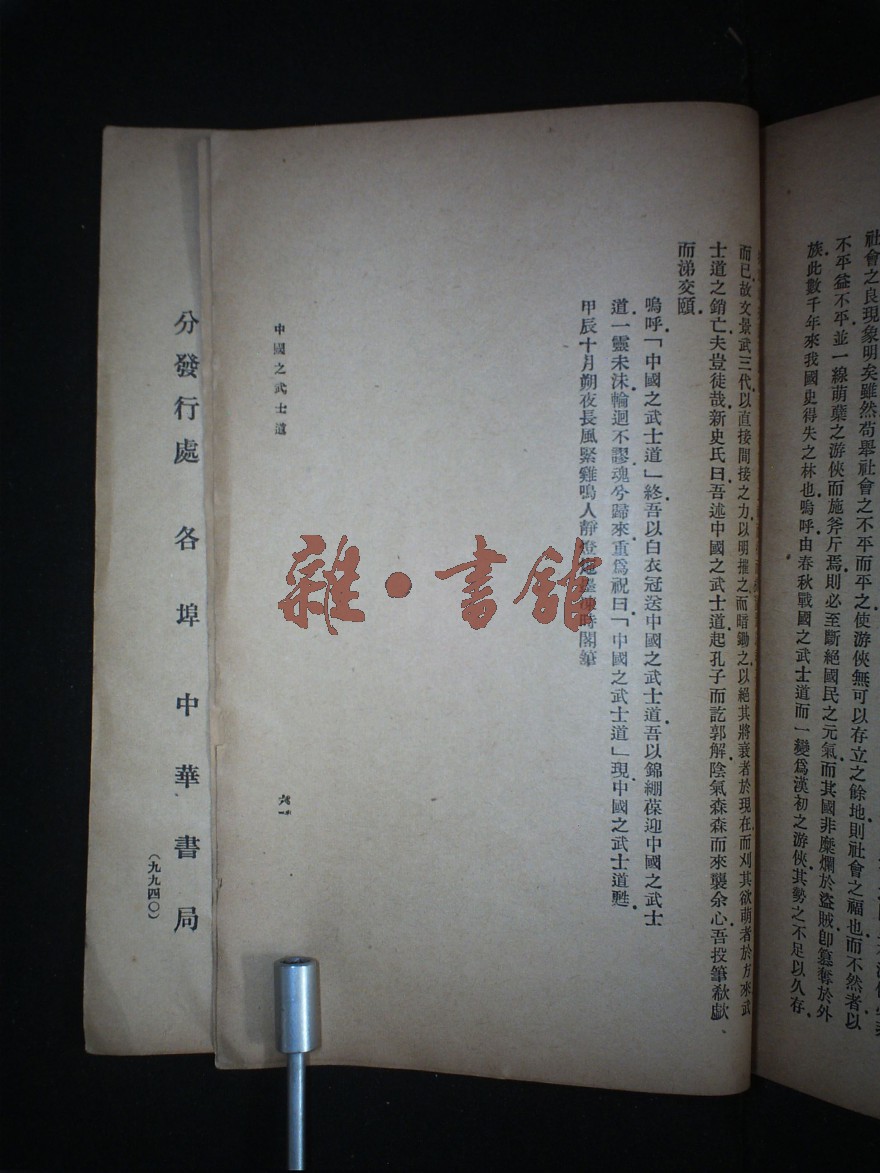 社會之良現象明矣雖然苟舉社會之不平而平之使游俠無可以存立之餘地則社會之福也而不然者以
不平益不平並一線萌蘖之游俠而施斧斤焉則必至斷絕國民之元氣而其國非糜爛於盜賊卽篡奪於外
族此數千年來我國史得失之林也嗚呼由春秋戰國之武士道而一變爲漢初之游俠其勢之不足以久存
而已故文景武三代以直接間接之力以明摧之而暗鋤之以絕其將衰者於現在而刈其欲萌者於方來武
士道之銷亡夫豈徒哉新史氏曰吾述中國之武士道起孔子而訖郭解陰氣森森而來襲余心吾投筆欷歔
而涕交頤
嗚呼「中國之武士道」終吾以白衣冠送中國之武士道吾以錦綳葆迎中國之武士
道一靈未沫輪迴不謬魂兮歸來重爲祝曰「中國之武士道」現中國之武士道甦
甲辰十月朔夜長風緊雞鳴人靜燈炧墨凍時閣筆
中國之武士道
六一
分發行處 各埠中華書局
(九九四〇)
雜·書館